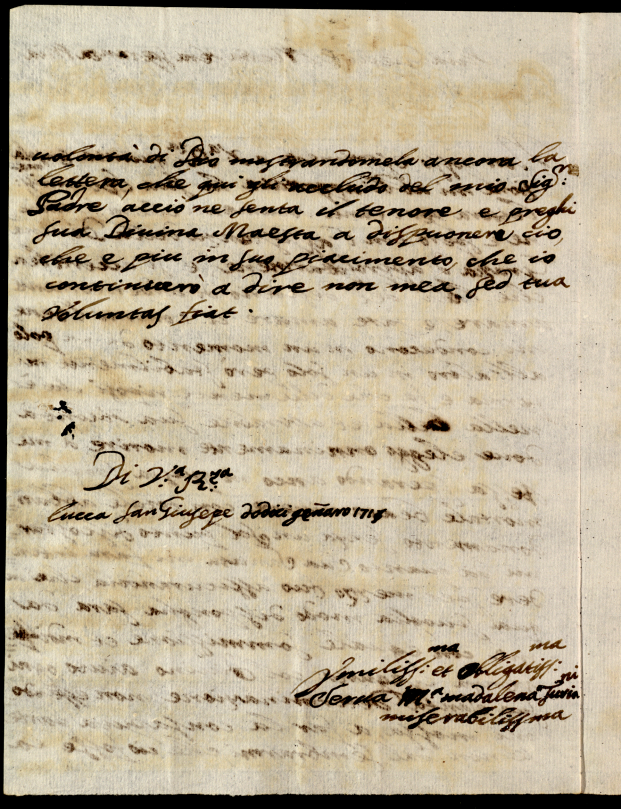 volontà di Dio mostrandomela ancora la
lettera, che qui gli accludo del mio Sig.r
Padre acciò ne senta il tenore e preghi
sua Divina Maesta a dispuonere ciò,
che e piu in suo piacimento, che io
continuerò a dire non mea, sed tua
voluntas fiat.
Di V.a R.za
Lucca San Giusepe dodici genñaro 1715
Umiliss:ma et Obligatiss:ma
Serva M.a Madalena
miserabilissma